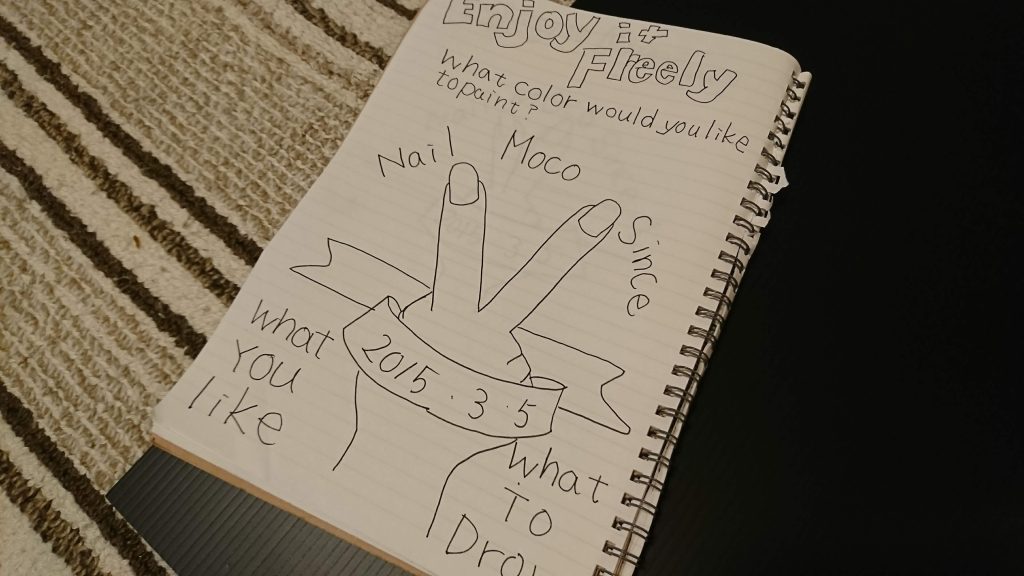 Enjoy it
Freely
What color would you like
topaint?
Nail Moco Since
2015.3.5
what
You
like
what
To